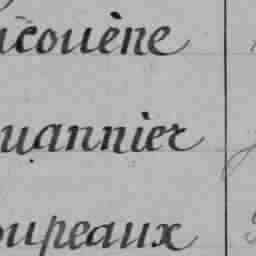 icouène
uannier
oupeaux